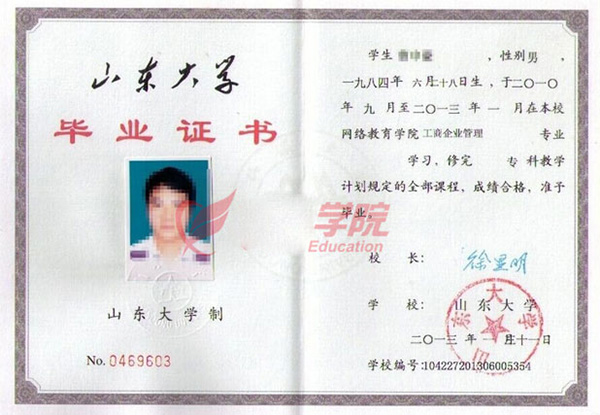 山东大学
毕业证书
山东大学制
No. 0469603
学生 ，性别男，
一九八四年 六 月二十八日生，于二〇一〇
年 九 月至二〇一三年 一 月在本校
网络教育学院 工商企业管理 专业
学习，修完 专 科教学
计划规定的全部课程，成绩合格，准予
毕业。
校 长： 徐显明
学 校： 山东大学
二〇一三年 一 月十一日
学校编号:104227201306005354
学院
Education
山东大学